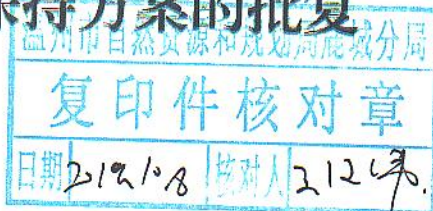 保持方案的批复
温州市自然资源和规划局鹿城分局
复印件核对章
日期2019.10.8 核对人